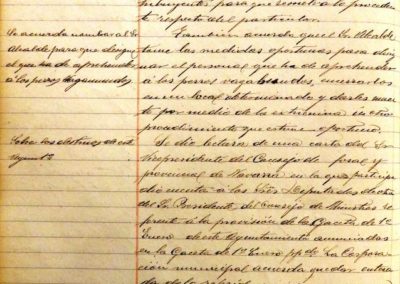 Se acuerda nombrar al Sr
Alcalde para que designe
el que ha de aprehender
á los perros vagamundos
Sobre los destinos de este
Ayunt.º
para que se
te respecto del particular.
Tambien acuerda que el Sr Alcalde
tome las medidas oportunas para desig
nar el personal que ha de aprehender
á los perros vagabundos, encerrarlos
en un local determinado y darles muer
te por medio de la extrinina ú otro
procedimiento que estime oportuno.
Se dió lectura de una carta del Sr
Vicepresidente del Consejo foral y
provincial de Navarra en la que participa
cuenta á los Sres Diputados
del Sr Presidente del Consejo de Ministros re
ferente á la provisión de las Gaceta de 1º
Enero de este Ayuntamiento anunciadas
en la Gaceta de 1º Enero ppdo. La Corpora
ción municipal acuerda quedar entera